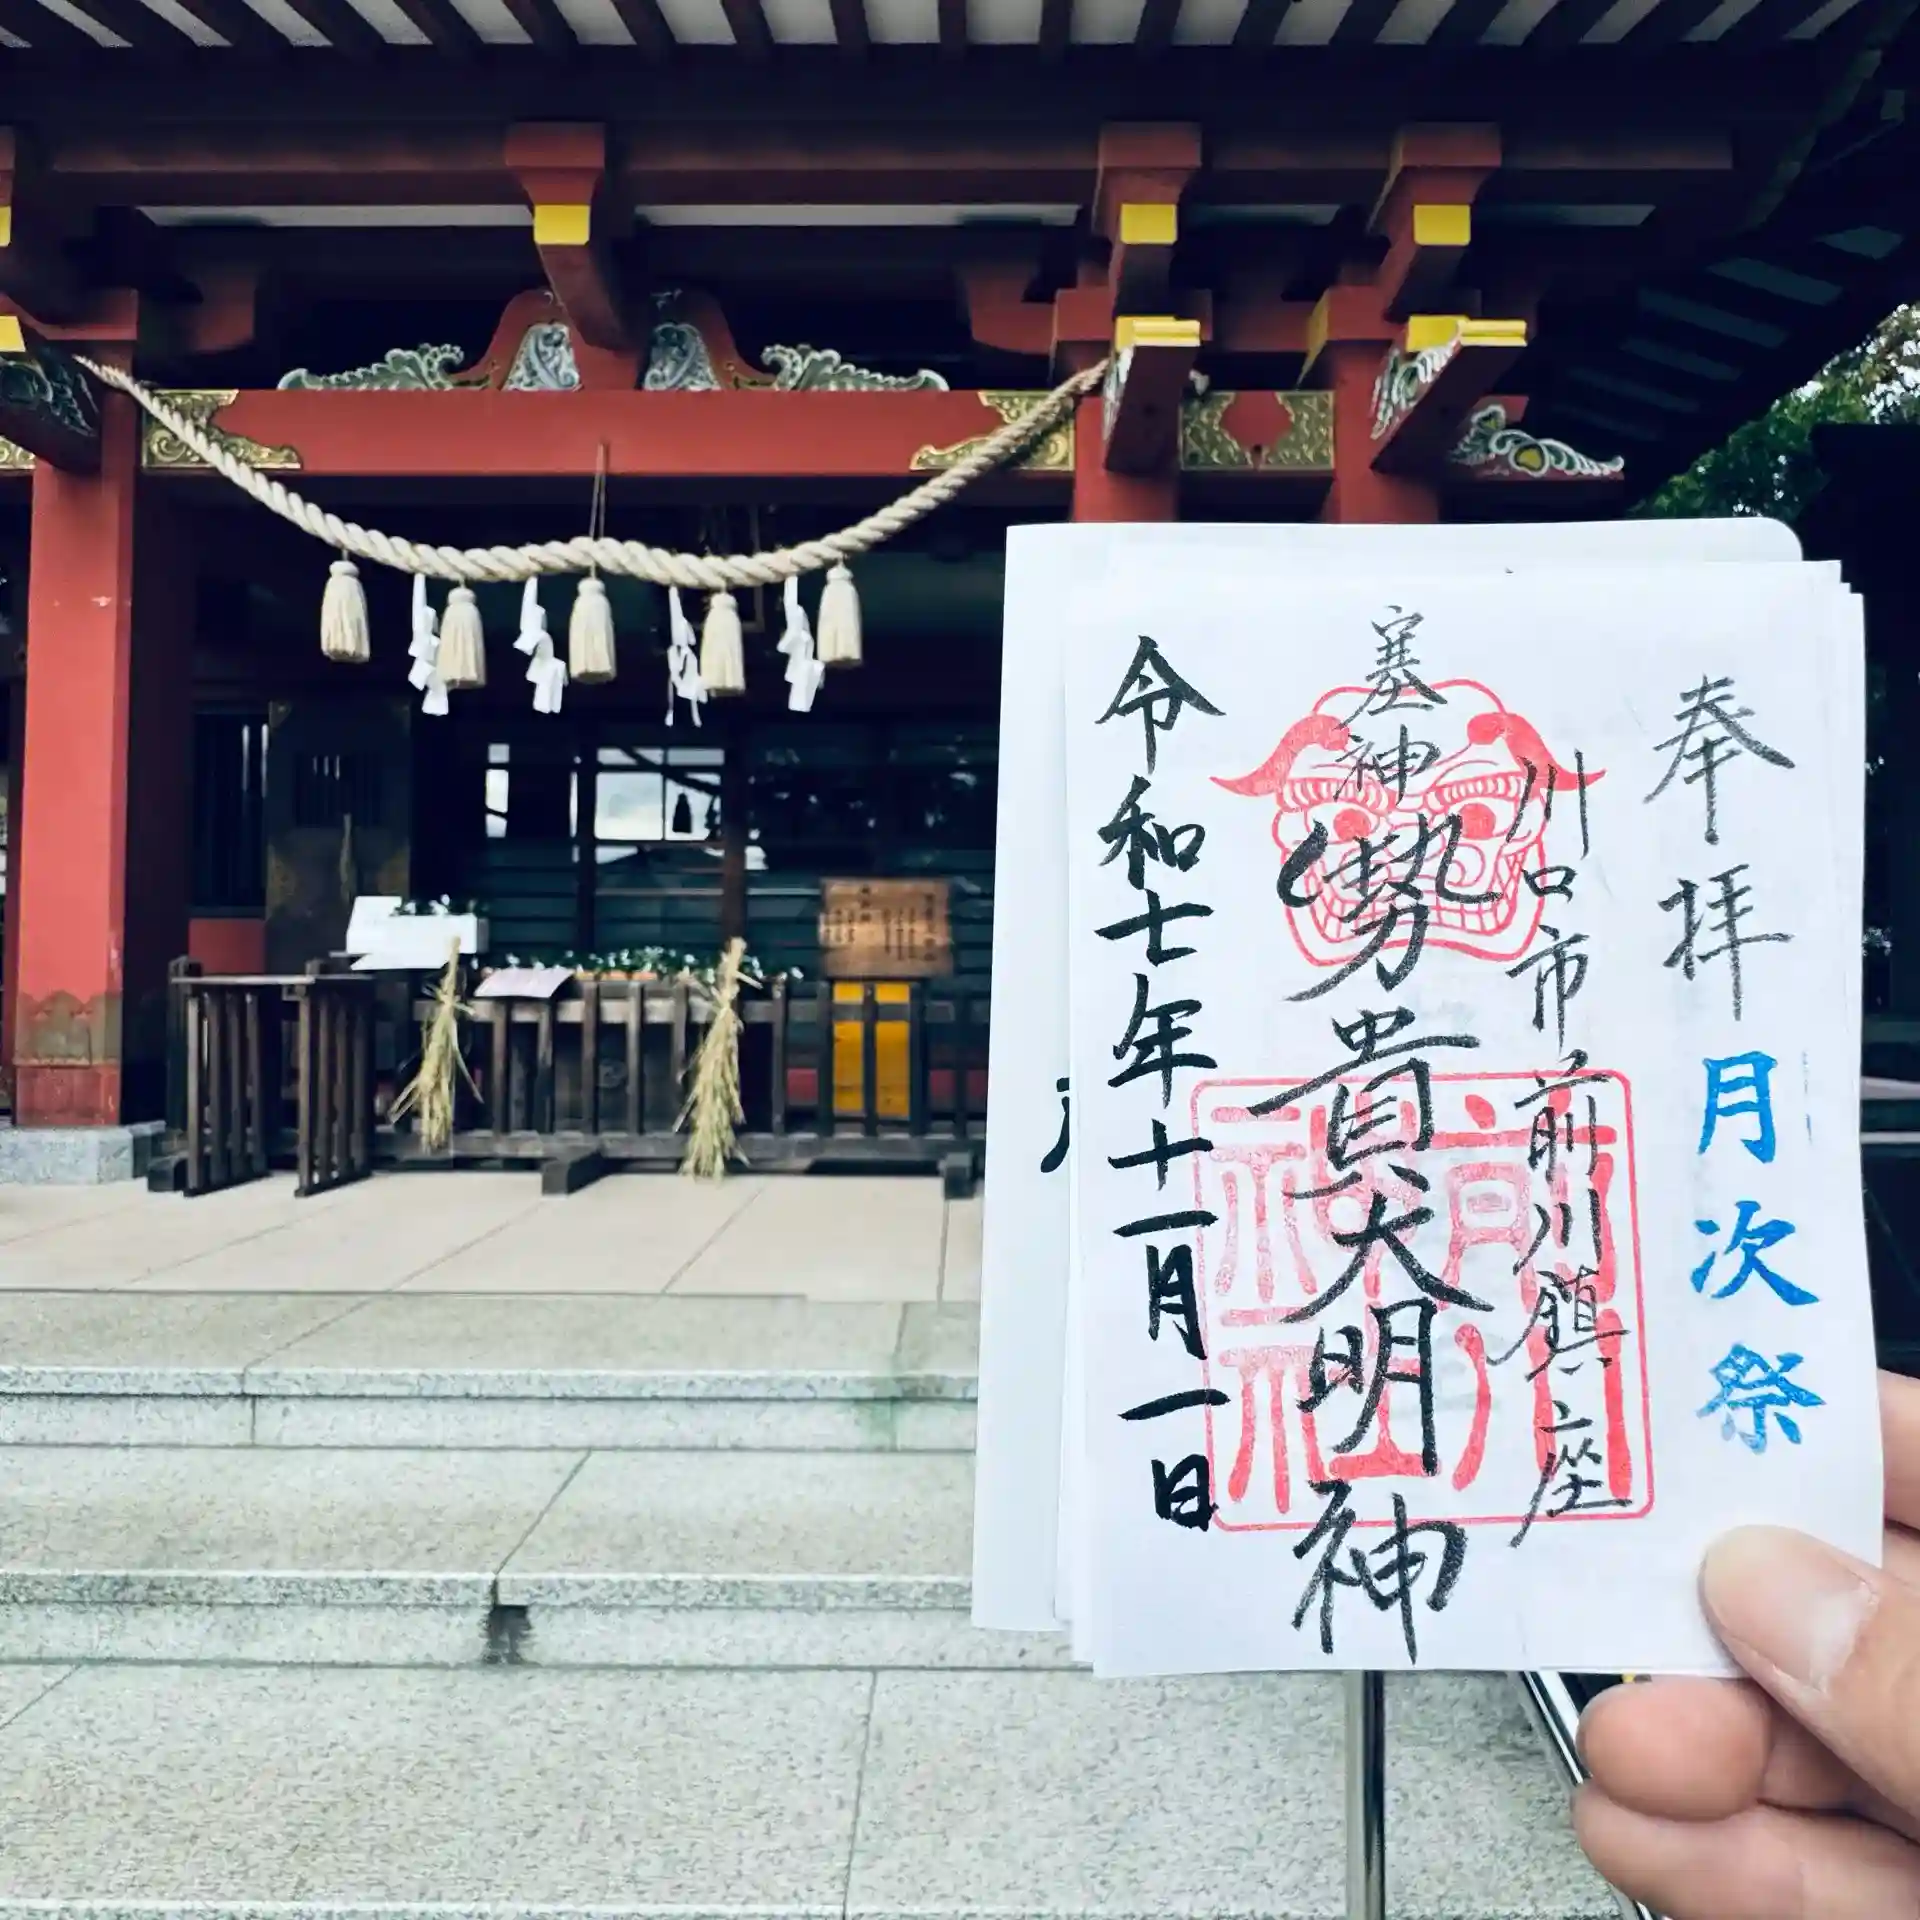 奉拝 月次祭
川口市前川鎮座
塞神
勢貴大明神
令和七年十一月一日
前川
神社